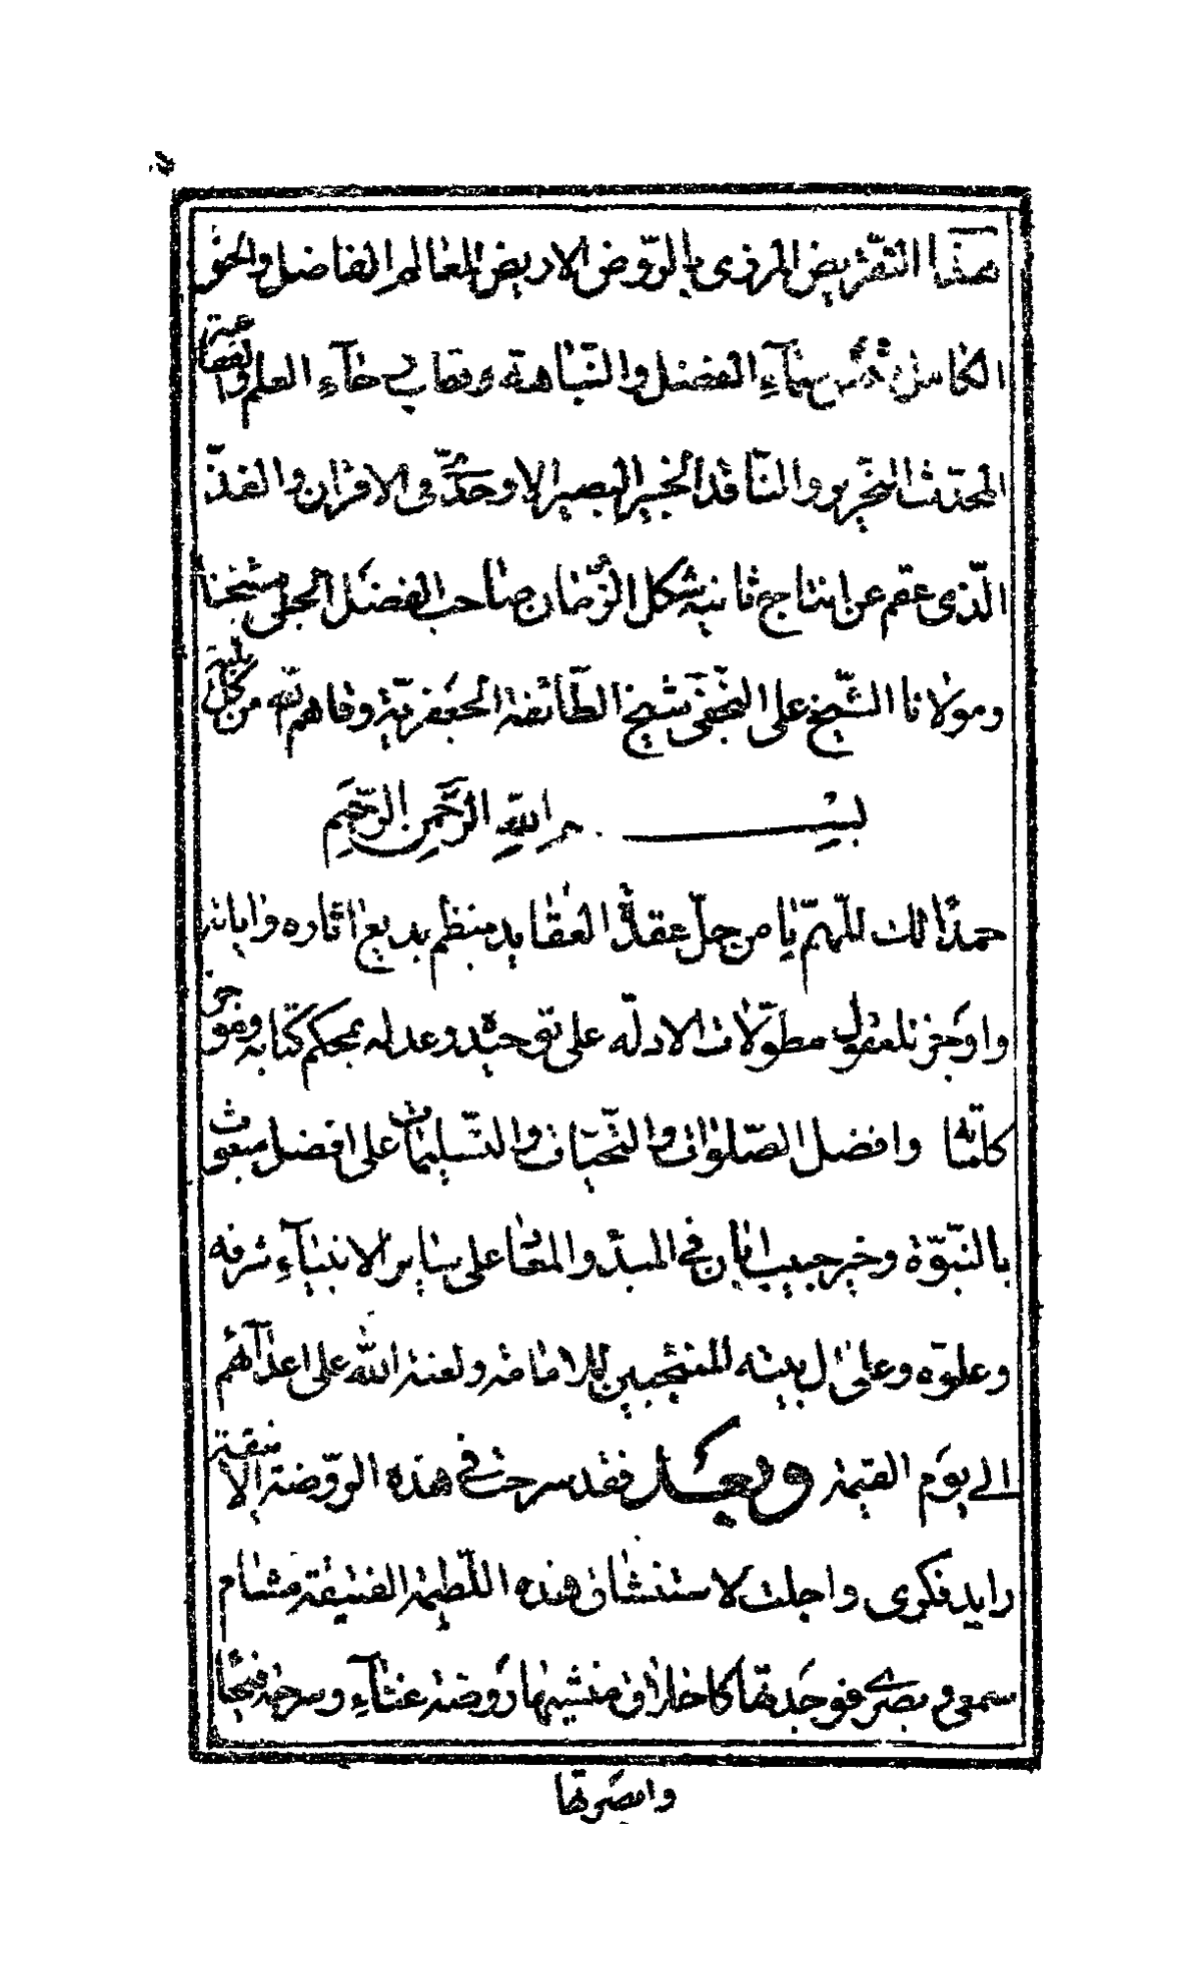 هذا التقريض المزرى بالروض الاريض للعالم الفاضل والحبر
الكامل شمس سمآء الفضل والنباهة وبقاب خآء العلم والفقاهة
المحدّث النحرير والنّاقد الخبير البصير الاوحدّى الاقران والفذّ
الّذى عقم عن انتاج ثانيه شكل الزّمان صاحب الفضل الجلى شيخنا
ومولانا الشّيخ على النجفى شيخ الطّائفة الجعفريّة وقاهم الله من كل بلية
بسم الله الرّحمن الرّحيم
حمدًا لك اللّهمّ يا من حلّ عقدة العقايد منظم بديع اثاره واياته
واوجز للعقول مطوّلات الادلّه على توحيده وعدله بمحكم كتابه وموجز
كلماته وافضل الصّلوات والتّحيّات والتّسليمات على افضل مبعوث
بالنّبوّة وخير حبيب ابان في المبدأ والمعاد على ساير الانبيآء شرفه
وعلوّه وعلى ال بيته المنتجبين للامامة ولعنة الله على اعدآئهم
الى يوم القيمة وبعد فقد سرحت في هذه الرّوضة الانيقة
رايد فكرى واجلت لاستنشاق هذه اللّطيمة الفتيقة مشام
سمعى وبصرى فوجدتها كاخلاق منشيها روضة غنّآء وسرحة فيحآء
وابصرتها